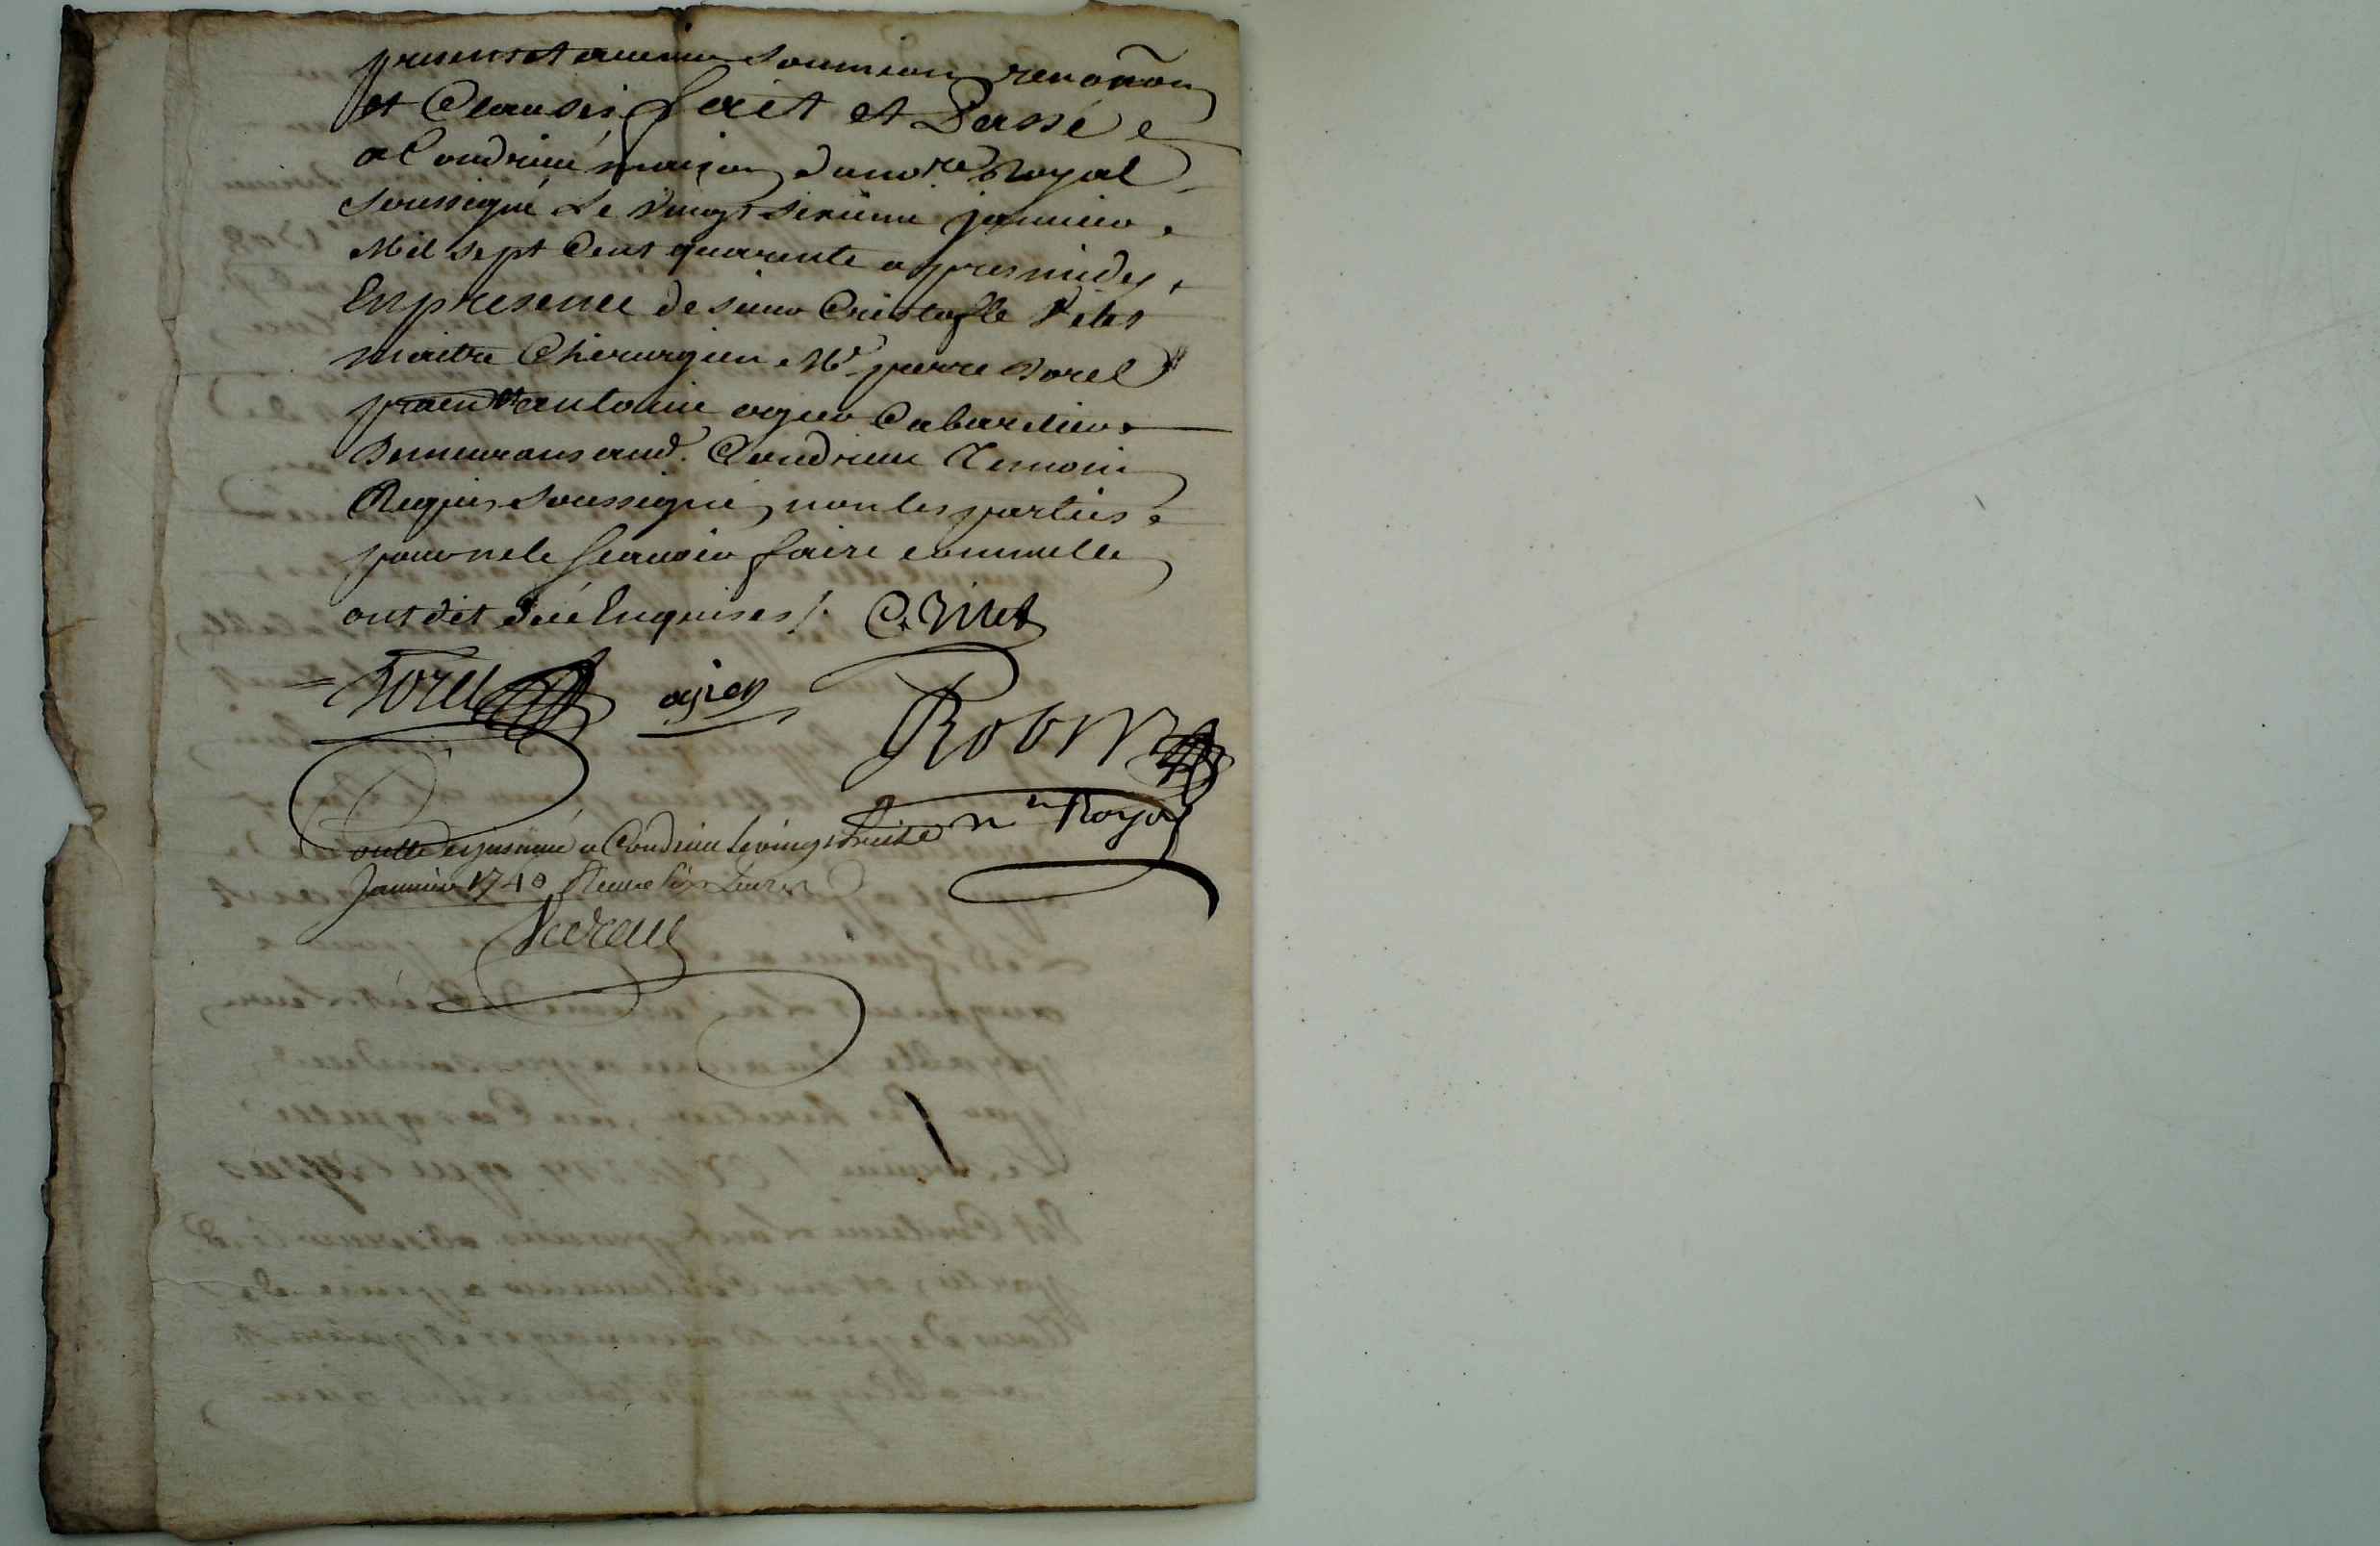 presens et avenir soumission renon͠on
et Clauses fait et Passé
a Condrieu maison du no.re Royal
soussigné Le Vingt sixieme janvier
Mil sept Cent quarante apres midy
En presence de sieur Cristofle Vilet
maitre Chirurgien Mr. pierre Borel
praen et antoine ogier Cabaretier
Demeurans aud. Condrieu Temoin
Requis soussigné, non les parties
pour ne le scavoir faire comme elle
ont dit de ce Enquises /. C. Vilet
Borel ogier
Robin
nre Royal
Controllé a Condrieu le vingt huit
Janvier 1740 Receu six Livres